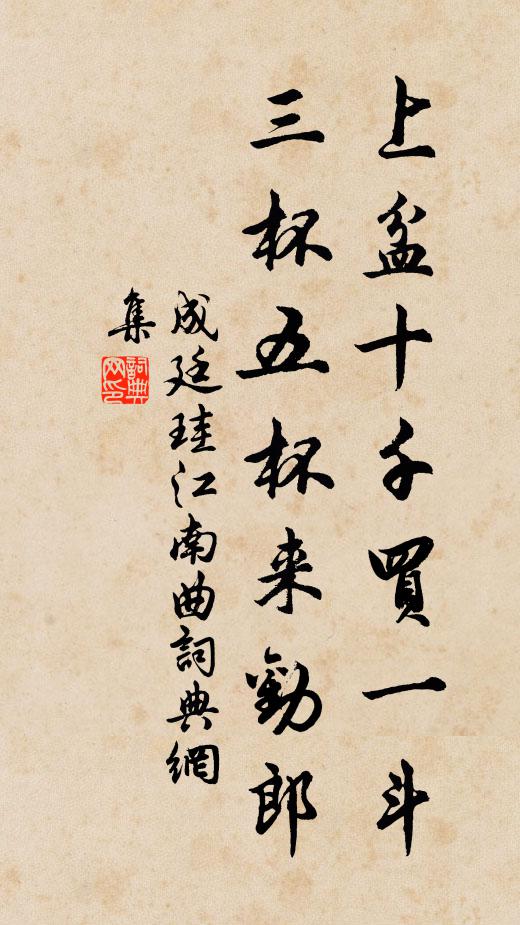 上盆十千買一斗
三杯五杯来勸郎
成廷珪江南曲詞典網
集
詞典
网印